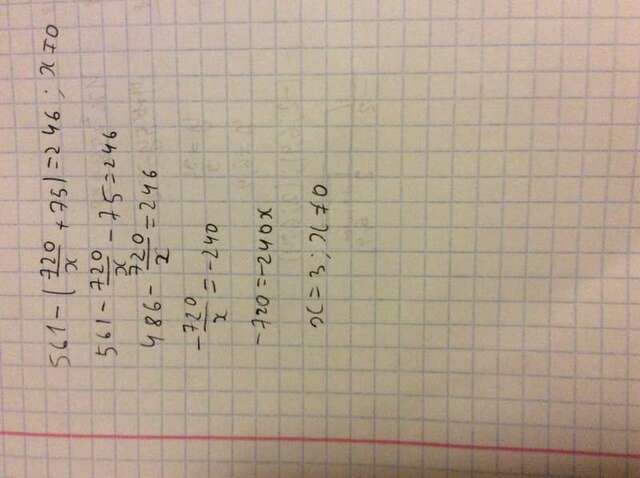 561 - (720/x + 75) = 246 ; x ≠ 0
561 - 720/x - 75 = 246
486 - 720/x = 246
-720/x = -240
-720 = -240x
x = 3 ; x ≠ 0